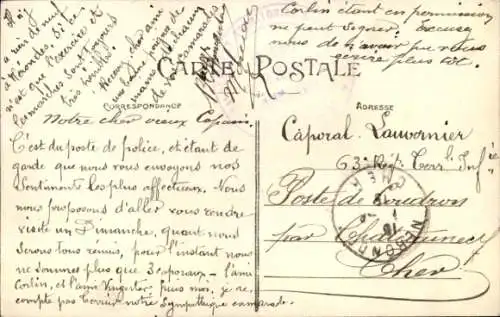 Rien
a Nérondes, si ce
n'est que l'exercice et
les marches sont toujours
très
Recevez cher ami
une bonne poignée de
mains de chacun
de vos camarades
Corlin étant en permission
ne peut signer. Excusez
nous de n'avoir pu vous
écrire plus tôt.
CARTE POSTALE
CORRESPONDANCE
ADRESSE
Notre cher vieux Copain.
C'est du poste de police, et étant de
garde que nous vous envoyons nos
sentiments les plus affectueux. Nous
nous proposons d'aller vous rendre
visite un Dimanche, quant nous
serons tous remis, pour l'instant nous
ne sommes plus que 3 caporaux - l'ami
Corlin, et l'ami Vingerter puis moi, je ne
compte pas Terrier notre sympathique camarade.
Caporal Lauvernier
63e Rég. Terr. Infie
Poste de Coudron
par Chateauneuf
Cher
NERONDES